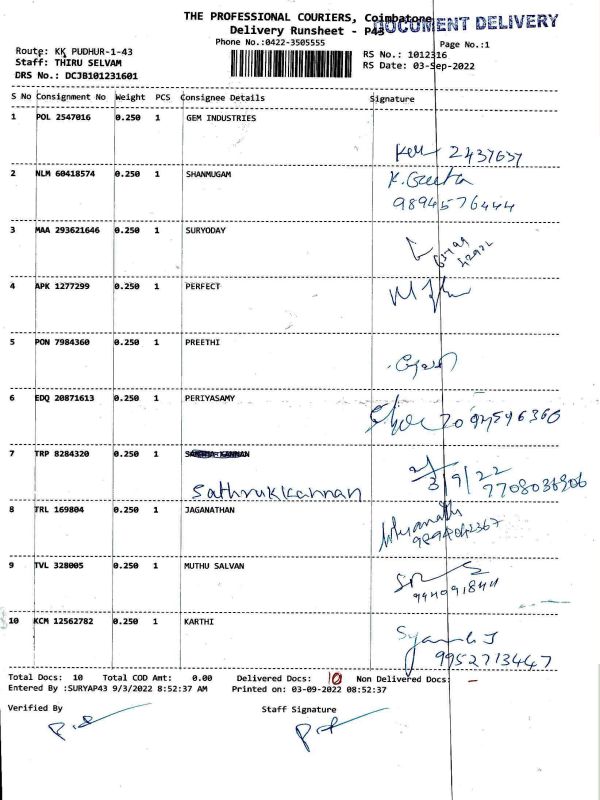 THE PROFESSIONAL COURIERS, Coimbatore
DOCUMENT DELIVERY
Delivery Runsheet - P43
Phone No.:0422-3505555
Page No.:1
Route: KK PUDHUR-1-43
RS No.: 1012316
Staff: THIRU SELVAM
RS Date: 03-Sep-2022
DRS No.: DCJB101231601
S No Consignment No Weight PCS Consignee Details Signature
1 POL 2547016 0.250 1 GEM INDUSTRIES
2437637
2 NLM 60418574 0.250 1 SHANMUGAM K. Geetha
9894576444
3 MAA 293621646 0.250 1 SURYODAY
4 APK 1277299 0.250 1 PERFECT
5 PON 7984360 0.250 1 PREETHI
6 EDQ 20871613 0.250 1 PERIYASAMY
7 TRP 8284320 0.250 1 KANNAN
3/9/22
Sathrukkannan 7708036906
8 TRL 169804 0.250 1 JAGANATHAN
9894042367
9 TVL 328005 0.250 1 MUTHU SALVAN
10 KCM 12562782 0.250 1 KARTHI
9952713447
Total Docs: 10 Total COD Amt: 0.00 Delivered Docs: 10 Non Delivered Docs: -
Entered By :SURYAP43 9/3/2022 8:52:37 AM Printed on: 03-09-2022 08:52:37
Verified By Staff Signature